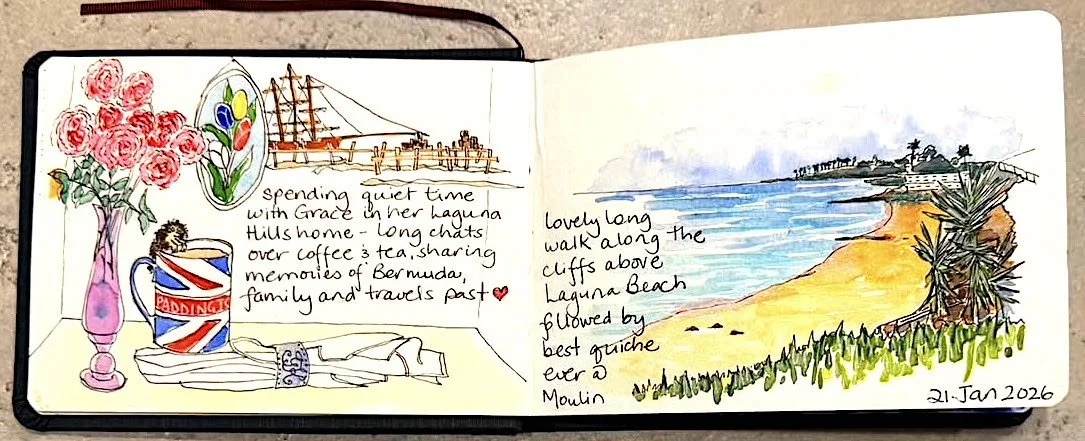 spending quiet time
with Grace in her Laguna
Hills home - long chats
over coffee & tea, sharing
memories of Bermuda,
family and travels past ♥
PADDINGTO
lovely long
walk along the
cliffs above
Laguna Beach
followed by
best quiche
ever @
Moulin
21.Jan 2026